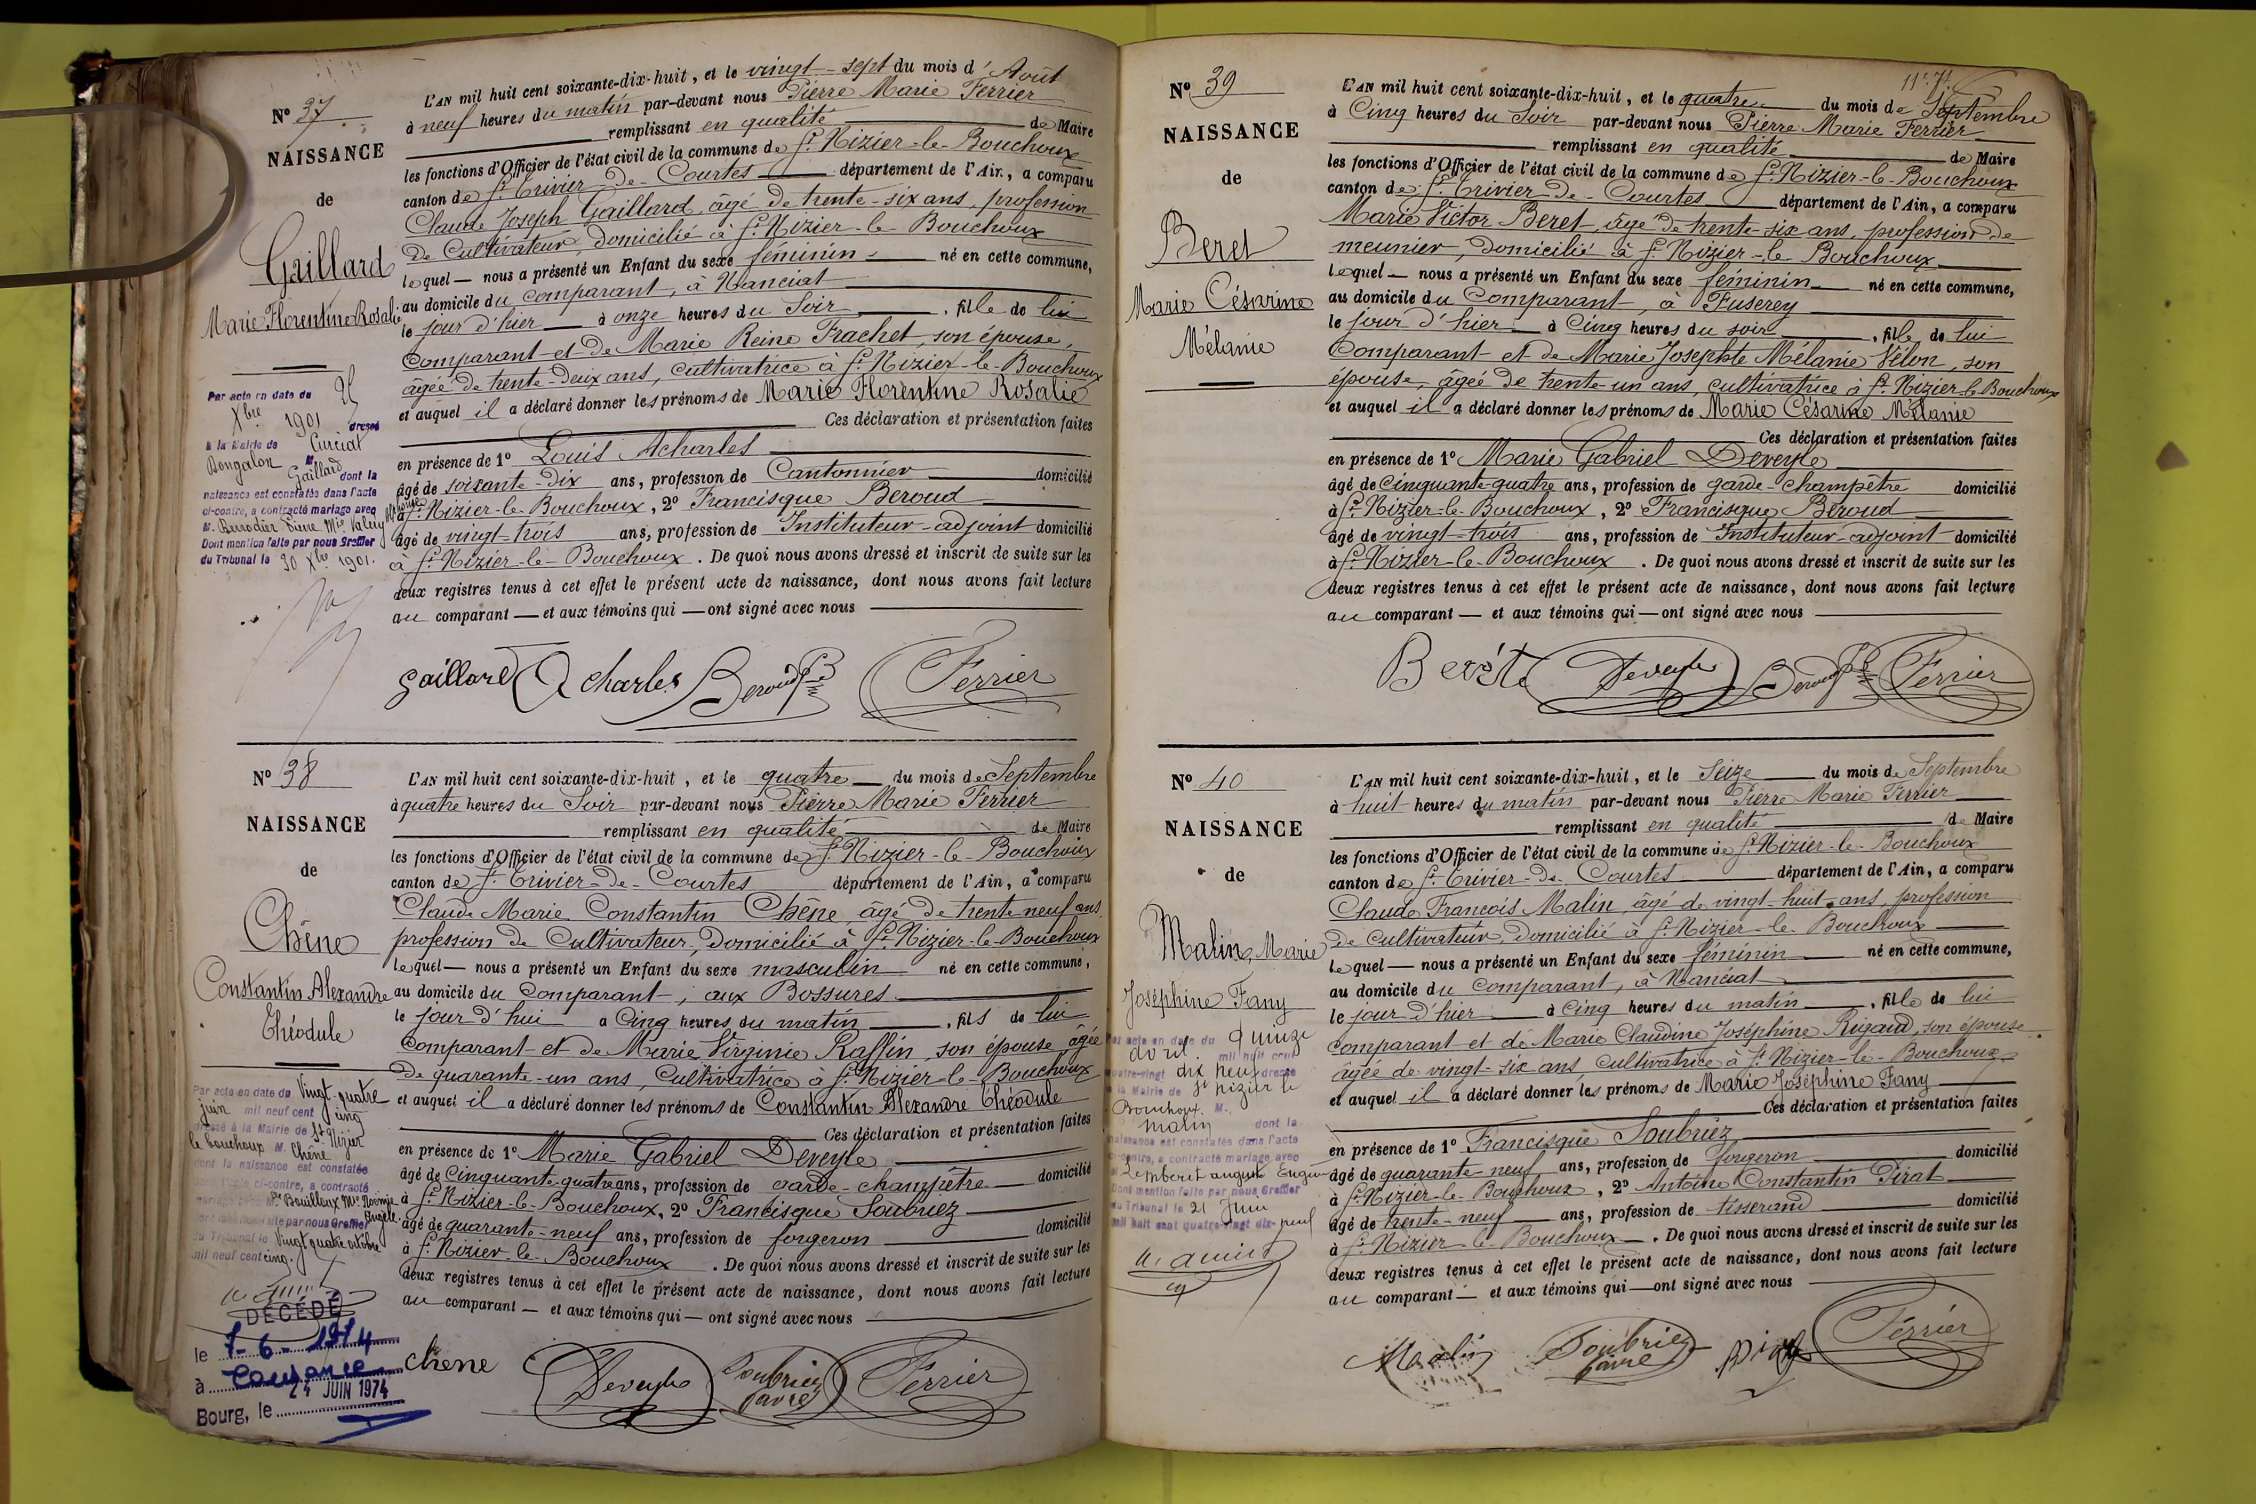 N° 37
NAISSANCE
de
Gaillard
Marie Florentine Rosalie
L'AN mil huit cent soixante-dix-huit, et le vingt-sept du mois d'Août
à neuf heures du matin par-devant nous Pierre Marie Ferrier
remplissant en qualité de Maire
les fonctions d'Officier de l'état civil de la commune de St Nizier-le-Bouchoux
canton de St Trivier-de-Courtes département de l'Ain, a comparu
Claude Joseph Gaillard, âgé de trente-six ans, profession
de Cultivateur, domicilié à St Nizier-le-Bouchoux
lequel nous a présenté un Enfant du sexe féminin né en cette commune,
au domicile du comparant, à Nanciat
le jour d'hier à onze heures du Soir, fille de lui
comparant et de Marie Reine Frachet, son épouse,
âgée de trente-deux ans, cultivatrice à St Nizier-le-Bouchoux
et auquel il a déclaré donner les prénoms de Marie Florentine Rosalie
Ces déclaration et présentation faites
en présence de 1° Louis Acharles
âgé de soixante-dix ans, profession de Cantonnier domicilié
à St Nizier-le-Bouchoux, 2° Francisque Beroud
âgé de vingt-trois ans, profession de Instituteur-adjoint domicilié
à St Nizier-le-Bouchoux. De quoi nous avons dressé et inscrit de suite sur les
deux registres tenus à cet effet le présent acte de naissance, dont nous avons fait lecture
au comparant et aux témoins qui ont signé avec nous
Par acte en date du
Xbre 1901 dressé
à la Mairie de Curciat
Dongalon M.
Gaillard dont la
naissance est constatée dans l'acte
ci-contre, a contracté mariage avec
M. Pierre Mie Valery
Dont mention faite par nous Greffier
du Tribunal le 30 Xbre 1901.
Gaillard Acharles Beroud Ferrier
N° 38
NAISSANCE
de
Chêne
Constantin Alexandre
Théodule
L'AN mil huit cent soixante-dix-huit, et le quatre du mois de Septembre
à quatre heures du Soir par-devant nous Pierre Marie Ferrier
remplissant en qualité de Maire
les fonctions d'Officier de l'état civil de la commune de St Nizier-le-Bouchoux
canton de St Trivier-de-Courtes département de l'Ain, a comparu
Claude Marie Constantin Chêne, âgé de trente neuf ans
profession de Cultivateur, domicilié à St Nizier-le-Bouchoux
lequel nous a présenté un Enfant du sexe masculin né en cette commune,
au domicile du comparant, aux Bossures
le jour d'hui à Cinq heures du matin, fils de lui
comparant et de Marie Virginie Raffin, son épouse âgée
de quarante-un ans, Cultivatrice à St Nizier-le-Bouchoux
et auquel il a déclaré donner les prénoms de Constantin Alexandre Théodule
Ces déclaration et présentation faites
en présence de 1° Marie Gabriel Deveyle
âgé de Cinquante-quatre ans, profession de garde-champêtre domicilié
à St Nizier-le-Bouchoux, 2° Francisque Soubriez
âgé de quarante-neuf ans, profession de forgeron domicilié
à St Nizier-le-Bouchoux. De quoi nous avons dressé et inscrit de suite sur les
deux registres tenus à cet effet le présent acte de naissance, dont nous avons fait lecture
au comparant et aux témoins qui ont signé avec nous
Par acte en date du Vingt-quatre
juin mil neuf cent cinq
dressé à la Mairie de St Nizier
le bouchoux M. Chêne
dont la naissance est constatée
dans l'acte ci-contre, a contracté
mariage avec Bouilloux Mie Noémie
Angèle
Dont mention faite par nous Greffier
du Tribunal le Vingt quatre octobre
mil neuf cent cinq.
DÉCÉDÉ
le 7-6-1974
à Cousance
24 JUIN 1974
Bourg, le
chene Deveyle Soubriez Ferrier
N° 39
NAISSANCE
de
Beret
Marie Césarine
Mélanie
L'AN mil huit cent soixante-dix-huit, et le quatre du mois de Septembre
à Cinq heures du Soir par-devant nous Pierre Marie Ferrier
remplissant en qualité de Maire
les fonctions d'Officier de l'état civil de la commune de St Nizier-le-Bouchoux
canton de St Trivier-de-Courtes département de l'Ain, a comparu
Marie Victor Beret, âgé de trente-six ans, profession de
meunier, domicilié à St Nizier-le-Bouchoux
lequel nous a présenté un Enfant du sexe féminin né en cette commune,
au domicile du Comparant, à Fuserey
le jour d'hier à Cinq heures du soir, fille de lui
Comparant et de Marie Josephte Mélanie Vélon, son
épouse, âgée de trente-un ans, cultivatrice à St Nizier-le-Bouchoux
et auquel il a déclaré donner les prénoms de Marie Césarine Mélanie
Ces déclaration et présentation faites
en présence de 1° Marie Gabriel Deveyle
âgé de Cinquante-quatre ans, profession de garde-champêtre domicilié
à St Nizier-le-Bouchoux, 2° Francisque Beroud
âgé de vingt-trois ans, profession de Instituteur-adjoint domicilié
à St Nizier-le-Bouchoux. De quoi nous avons dressé et inscrit de suite sur les
deux registres tenus à cet effet le présent acte de naissance, dont nous avons fait lecture
au comparant et aux témoins qui ont signé avec nous
Deveyle Beroud Ferrier
N° 40
NAISSANCE
de
Malin Marie
Joséphine Fany
L'AN mil huit cent soixante-dix-huit, et le Seize du mois de Septembre
à huit heures du matin par-devant nous Pierre Marie Ferrier
remplissant en qualité de Maire
les fonctions d'Officier de l'état civil de la commune de St Nizier-le-Bouchoux
canton de St Trivier-de-Courtes département de l'Ain, a comparu
Claude François Malin, âgé de vingt-huit ans, profession
de cultivateur, domicilié à St Nizier-le-Bouchoux
lequel nous a présenté un Enfant du sexe féminin né en cette commune,
au domicile du comparant, à Nanciat
le jour d'hier à Cinq heures du matin, fille de lui
comparant et de Marie Claudine Joséphine Rigaud, son épouse
âgée de vingt-six ans, cultivatrice à St Nizier-le-Bouchoux
et auquel il a déclaré donner les prénoms de Marie Joséphine Fany
Ces déclaration et présentation faites
en présence de 1° Francisque Soubriez
âgé de quarante-neuf ans, profession de forgeron domicilié
à St Nizier-le-Bouchoux, 2° Antoine Constantin Pirat
âgé de trente-neuf ans, profession de tisserand domicilié
à St Nizier-le-Bouchoux. De quoi nous avons dressé et inscrit de suite sur les
deux registres tenus à cet effet le présent acte de naissance, dont nous avons fait lecture
au comparant et aux témoins qui ont signé avec nous
Par acte en date du quinze
avril mil huit cent
quatre-vingt dix neuf dressé
à la Mairie de St nizier le
Bouchoux M.
malin dont la
naissance est constatée dans l'acte
ci-contre, a contracté mariage avec
Lemberet auguste Eugène
Dont mention faite par nous Greffier
du Tribunal le 21 Juin
mil huit cent quatre-vingt dix-neuf
Malin Soubriez Pirat Ferrier